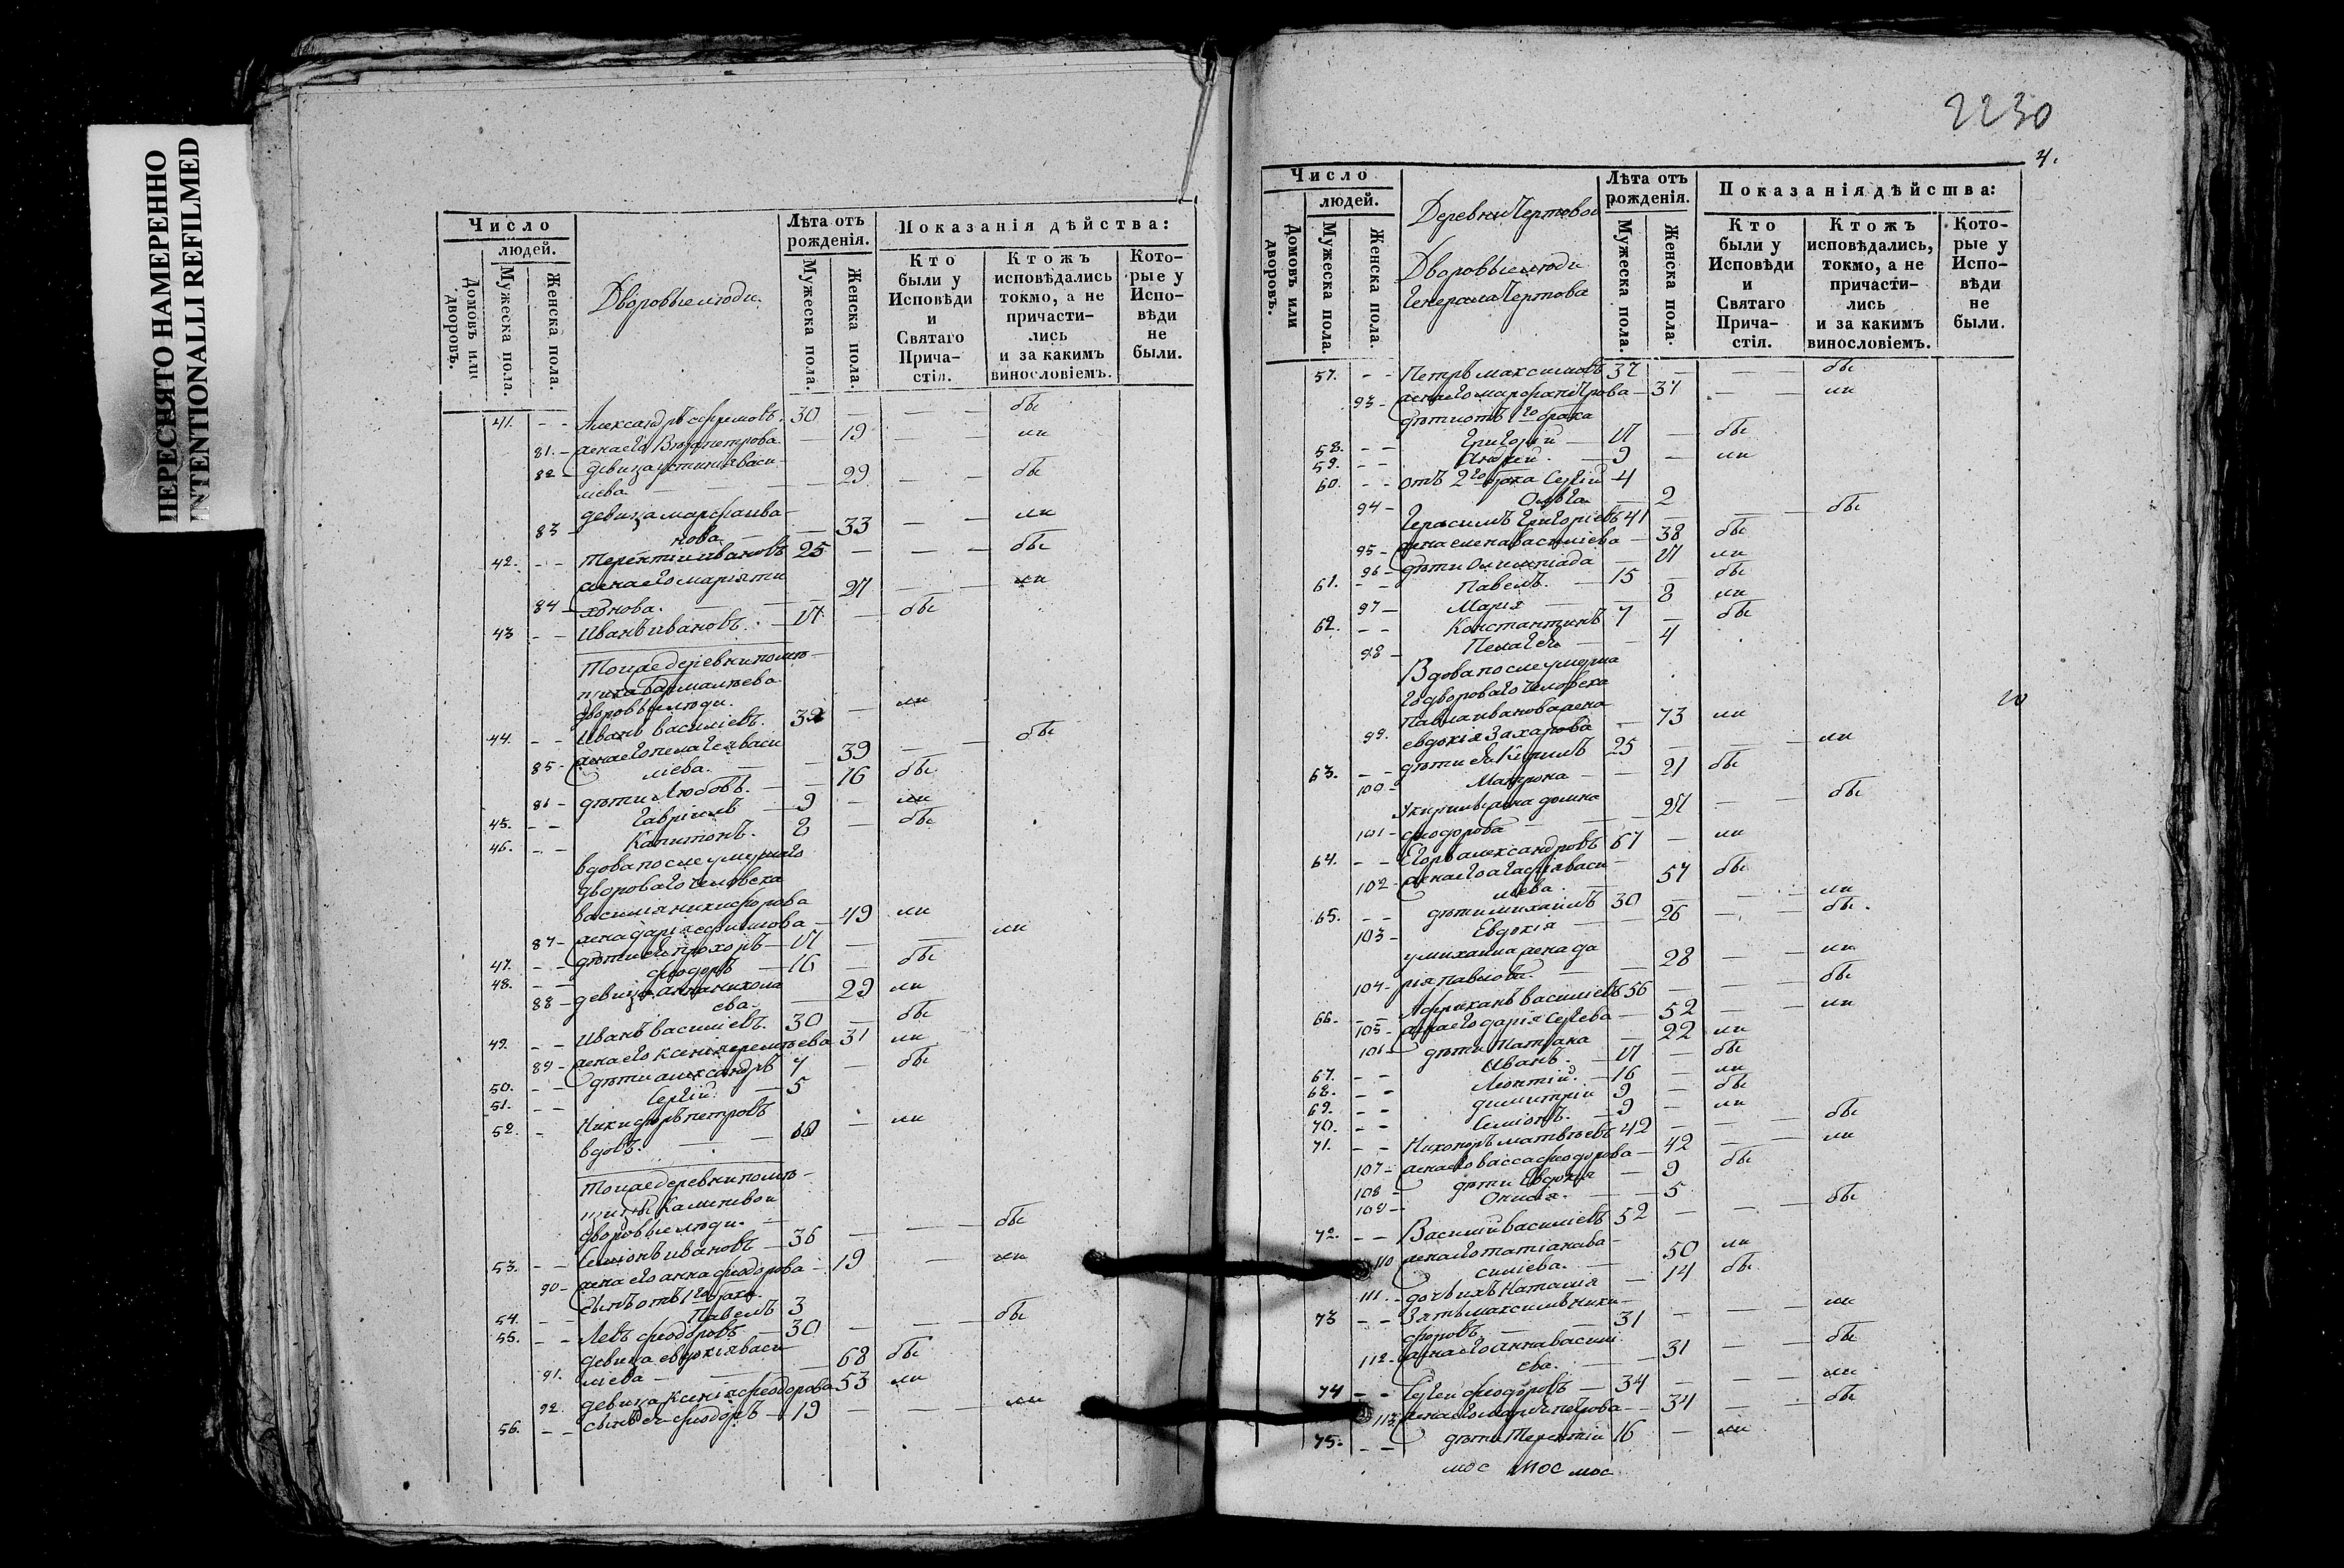 ПЕРЕСНЯТО НАМЕРЕННО
INTENTIONALLI REFILMED
Число
людей.
Домовъ или дворовъ.
Мужеска пола.
Женска пола.
Дворовые люди.
Лѣта отъ рожденія.
Мужеска пола.
Женска пола.
Показанія дѣйства:
Кто были у Исповѣди и Святаго Прича-стія.
Ктожъ исповѣдались токмо, а не причасти-лись и за какимъ винословіемъ.
Кото-рые у Испо-вѣди не были.
41. - - Александръ Ефремовъ. 30 — — — бы
81. - жена его Вѣра петрова — 19 — — ли
82 - девица устинія васи
лиева — — 29 — — бы
девица марфа ива
83 - нова — — 33 — — ли
42. - - Терентий ивановъ 25 — — — бы
жена его марія ти
84 - хонова. — — 27 — — ли
43 - - Иванъ ивановъ. — 17 — бы
Тоиже деревни помѣ
щика
дворовые люди.
44. - - Иванъ василіевъ. — ли
жена его пелагея васи
85 - лиева. — — 39 — — бы
86 - дѣти Любовь. — — 16 бы
45. - - Гавріилъ — 9 — ли
46. - - Капитонъ. 8 — бы
вдова после умершаго
двороваго человека
василія никифорова
87 - жена дарія ефимова — 49 ли
47. - - дѣти ея прохоръ — 17 — — ли
48. - - феодоръ — 16 — бы
88 - девица анна никола
ева. — 29 ли
49. - - Иванъ василіевъ. 30 — бы
89 - жена его ксенія еремѣева 31 ли
50. - - дѣти александръ 7 — бы
51. - - Сергій. — 5
52. - Никифоръ петровъ — ли
вдовъ. — —
Тоиже деревни помѣ
щицы
дворовые люди. —
53. - - Семіонъ ивановъ — 36 — — — бы
90 - жена его анна феодорова — 19 — ли
сынъ отъ 1го брака
54. - - Павелъ 3
55. - - Левъ феодоровъ — 30 — — — бы
девица евдокія васи
91. лиева — — 68 бы
92. девица ксенія феодорова 53 ли
56. - - сынъ ея феодоръ — 19 — — — ли
2230
4.
Число
людей.
Домовъ или дворовъ.
Мужеска пола.
Женска пола.
Деревни Чертовой
Дворовые люди
Генерала Чертова
Лѣта отъ рожденія.
Мужеска пола.
Женска пола.
Показанія дѣйства:
Кто были у Исповѣди и Святаго Прича-стія.
Ктожъ исповѣдались, токмо, а не причасти-лись и за какимъ винословіемъ.
Кото-рые у Испо-вѣди не были.
57. - - Петръ максимовъ 37 — — — бы
93 - жена его марфа петрова — 37 — — ли
дѣти отъ 1го брака
58. - - Григорій — 17 — бы
59. - - Андрей. — 9 — ли
60. - - отъ 2го брака Сергій 4
94 - Ольга — 2
Герасимъ Григоріевъ 41 — — — бы
95 - жена елена василіева — 38 бы
96 - дѣти Олимпіада — 17 ли
61. - - Павелъ. — 15 — бы
97 - Марія — — 8 ли
62. - - Константинъ 7 — бы
98 - Пелагея — — 4
Вдова после умерша
го двороваго человека
Павла иванова жена
99. евдокія Захарова — 73 ли
63. - - дѣти ея Кирилъ 25 — — — ли
100 - Матрона — — 21 бы
У кирила жена домна
101 - феодорова — — 27 — — бы
64. - - Егоръ александровъ 67 — ли
102 - жена его агафія васи
лиева. — — 57 бы
65. - - дѣти михаилъ 30 — — — ли
103 - Евдокія — — 26 — — бы.
у михаила жена да
104 - рія павлова. — — 28 — — ли
66. - - Африканъ василіевъ 56 — — — бы
105 - жена его дарія Сергева — 52 — — ли
106 - дѣти — 22 ли
67. - - Иванъ. — 17 — бы
68. - - Леонтій. — 16 — ли
69. - - димитрій 9 — бы
70. - - Семіонъ. — 9 — ли
71. - - Никоноръ матвѣевъ 42 — — — бы
107 - жена его васса феодорова — 42 — — ли
108 - дѣти Евдокія — 9 бы
109 - — — 5
72. - - Василий василіевъ 52 — — — бы
110 жена его татіана ва
силіева. — — 50 ли
111. - дочь ихъ Наталія — 14 бы
73 - - Зять максимъ ники
форовъ. — — 31 — — — ли
112 - жена его анна васили
ева. — — 31 — — бы
74 - - Сергеи феодоровъ — 34 — — — ли
113 жена его марія петрова — 34 — — бы
75. - - дѣти Терентій 16 — ли